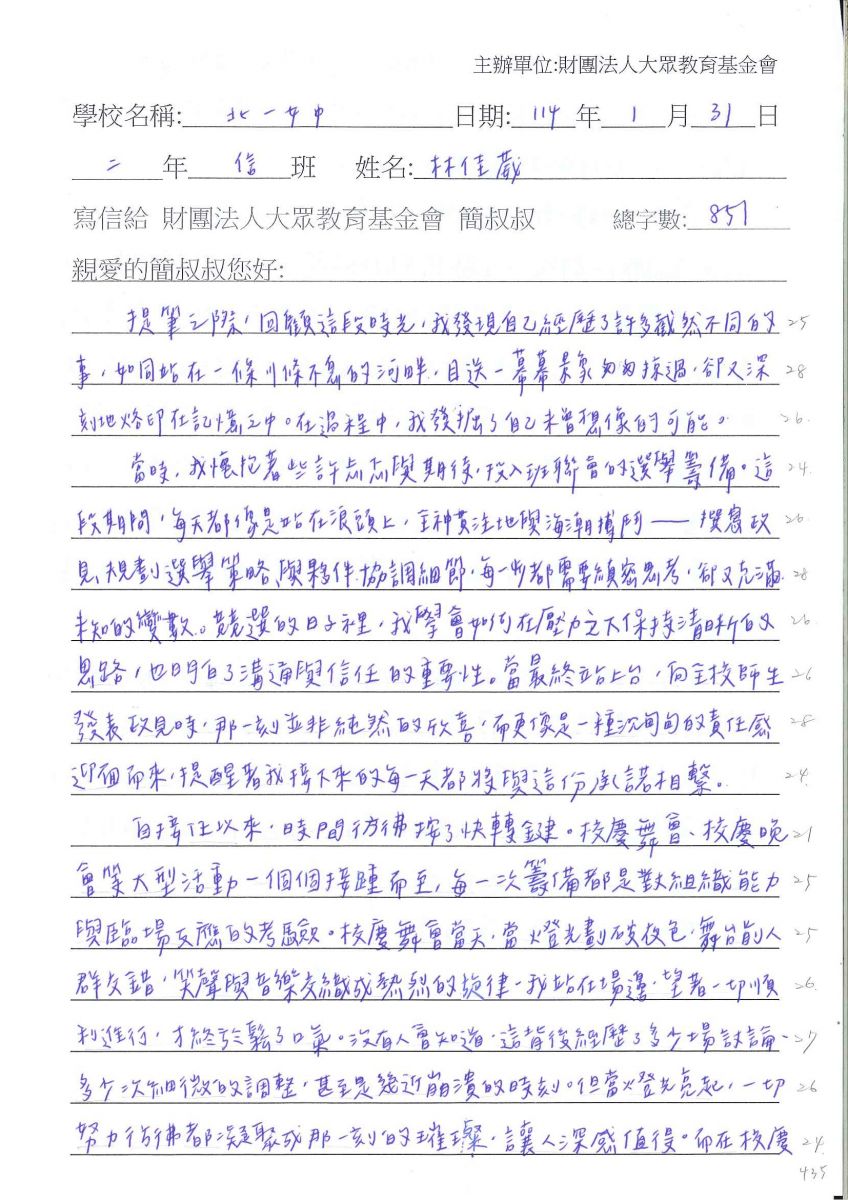 主辦單位:財團法人大眾教育基金會
學校名稱: 北一女中 日期: 114 年 1 月 31 日
二 年 信 班 姓名: 林佳葳
寫信給 財團法人大眾教育基金會 簡叔叔 總字數: 851
親愛的簡叔叔您好:
提筆之際,回顧這段時光,我發現自己經歷了許多截然不同的 25
事,如同站在一條川條不息的河畔,目送一幕幕景象匆匆掠過,卻又深 28
刻地烙印在記憶之中。在過程中,我發掘了自己未曾想像的可能。 26
當時,我懷抱著些許忐忑與期待,投入班聯會的選舉籌備。這 24
段期間,每天都像是站在浪頭上,全神貫注地與海潮搏鬥——撰寫政 26
見、規劃選舉策略、與夥伴協調細節,每一步都需要縝密思考,卻又充滿 28
未知的變數。競選的日子裡,我學會如何在壓力之下保持清晰的 26
思路,也明白了溝通與信任的重要性。當最終站上台,向全校師生 26
發表政見時,那一刻並非純然的欣喜,而更像是一種沉甸甸的責任感 28
迎面而來,提醒著我接下來的每一天都將與這份承諾相繫。 24
自接任以來,時間彷彿按了快轉鍵。校慶舞會、校慶晚 21
會等大型活動一個個接踵而至,每一次籌備都是對組織能力 25
與臨場反應的考驗。校慶舞會當天,當燈光劃破夜色,舞台前人 25
群交錯,笑聲與音樂交織成熱烈的旋律,我站在場邊,望著一切順 26
利進行,才終於鬆了口氣。沒有人會知道,這背後經歷了多少場討論、 27
多少次細微的調整,甚至是幾近崩潰的時刻。但當燈光亮起,一切 26
努力彷彿都凝聚成那一刻的璀璨,讓人深感值得。而在校慶 24
435